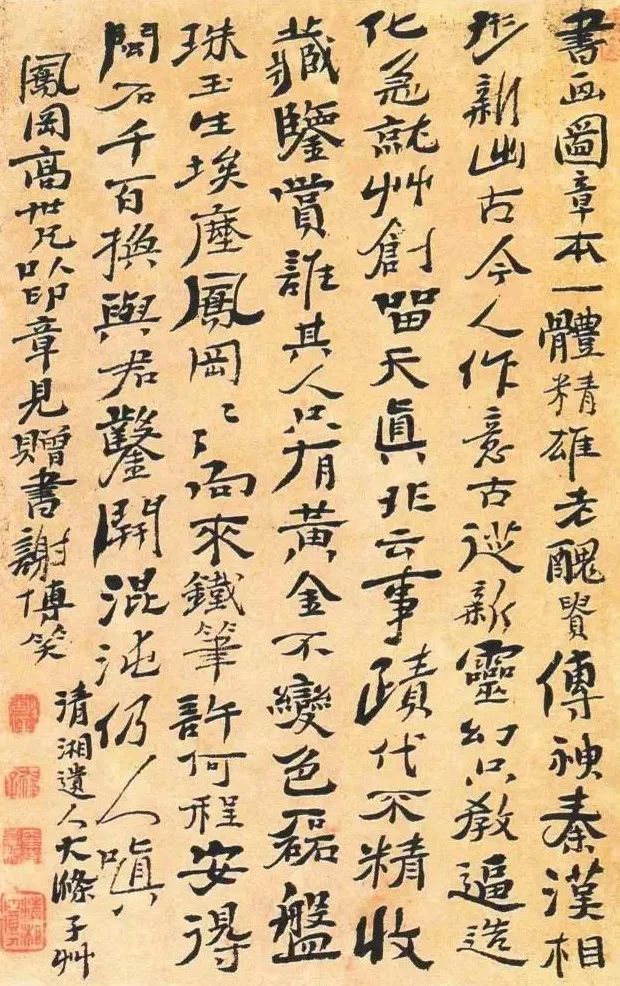 書画圖章本一體精雄老醜貴傳神秦漢相
形新出古今人作意古從新靈幻只教逼造
化急就艸創留天真非云事蹟代不精收
藏鑒賞誰其人只有黃金不變色磊盤
珠玉生埃塵鳳岡〻〻向來鐵筆許何程安得
閒石千百換與君鑿開混沌仍人嗔
鳳岡高世兄以印章見贈書謝博笑
清湘遺人大滌子艸